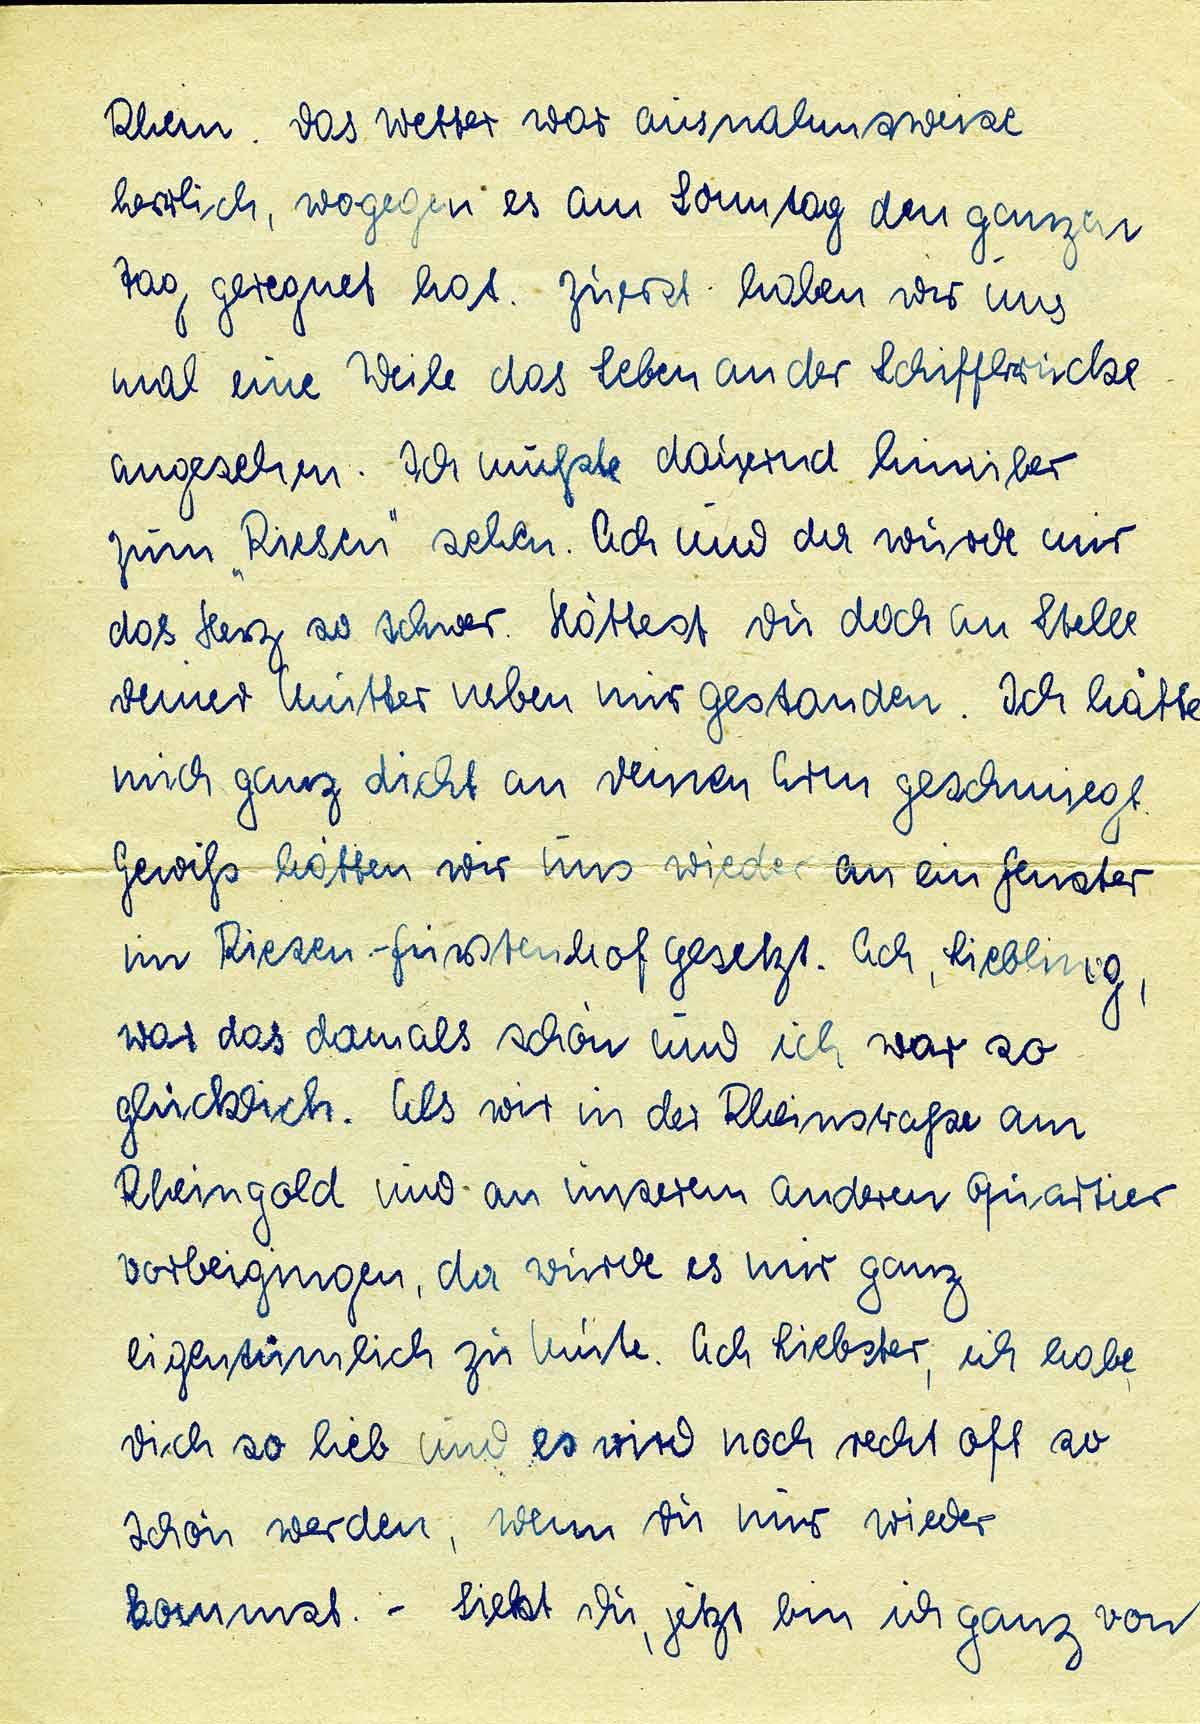 Rhein. Das Wetter war ausnahmsweise
herrlich, wogegen es am Sonntag den ganzen
Tag geregnet hat. Zuerst haben wir uns
mal eine Weile das Leben an der Schiffbrücke
angesehen. Ich mußte dauernd hinüber
zum „Riesen" sehen. Ach und da wurde mir
das Herz so schwer. Hättest du doch an Stelle
deiner Mutter neben mir gestanden. Ich hätte
mich ganz dicht an deinen Arm geschmiegt.
Gewiß hätten wir uns wieder an ein Fenster
im Riesen-Fürstenhof gesetzt. Ach, Liebling,
war das damals schön und ich war so
glücklich. Als wir in der Rheinstraße am
Rheingold und an unserem anderen Quartier
vorbeigingen, da wurde es mir ganz
eigentümlich zu Mute. Ach Liebster, ich habe
dich so lieb und es wird noch recht oft so
schön werden, wenn du nur wieder
kommst. - Siehst du, jetzt bin ich ganz von